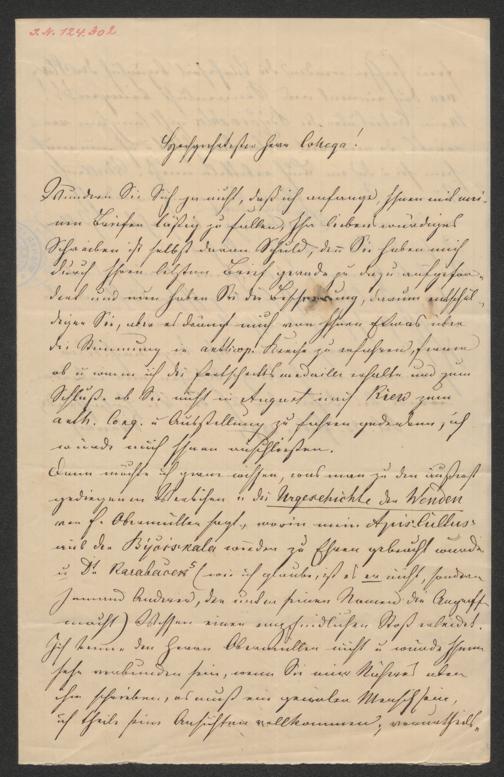 J.N. 124.302
Hochgeehrtester Herr Collega!
Wundern Sie Sich ja nicht, daß ich anfange Ihnen mit mei-
nen Briefen lästig zu fallen, Ihr liebenswürdiges
Schreiben ist selbst daran Schuld, denn Sie haben mich
durch Ihren letzten Brief gerade zu dazu aufgefor-
dert und nun haben Sie die Bescheerung, darum entschul-
digen Sie, aber es drängt mich von Ihnen Etwas über
die Stimmung in anthrop. Kreise zu erfahren, ferner
ob u wann ich die Fortschrittsmedaille erhalte und zum
Schluße ob Sie nicht in August nach Kiew zum
arch. Cong. u Ausstellung zu fahren gedenken, ich
würde mich Ihnen anschließen.
Dann möchte ich gerne wissen, was man zu den äußerst
gediegenen Werkchen u die Urgeschichte der Wenden
von H. Obermüller sagt, worin mein Apis Cultus
aus der Býčiskala wieder zu Ehren gebracht wurde
u Dr Karabaceks (wie ich glaube, ist es er nicht, sondern
Jemand Anderer, der unter seinem Namen die Angriffe
macht) Wissen einen empfindlichen Stoß erleidet.
Ich kenne den Herrn Obermüller nicht u würde Ihnen
sehr verbunden sein, wenn Sie mir Näheres über
ihn schrieben, es muß ein genialer Mensch sein,
ich theile seine Ansichten vollkommen,